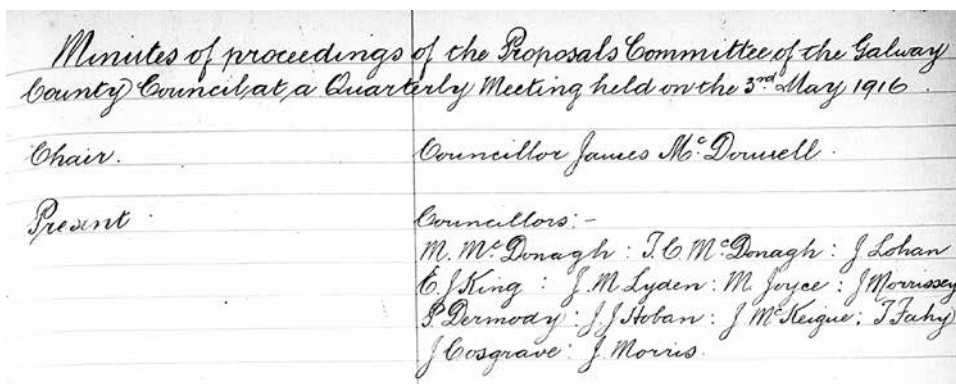 Minutes of proceedings of the Proposals Committee of the Galway
County Council at a Quarterly Meeting held on the 3rd May 1916.
Chair. Councillor James McDonnell.
Present Councillors:-
M. McDonagh : T. C. McDonagh : J Lohan
E. J King : J. M Lyden : M. Joyce : J Morrissey
P. Dermody : J. J Hoban : J McKeigue : T Fahy
J Cosgrave : J. Morris.